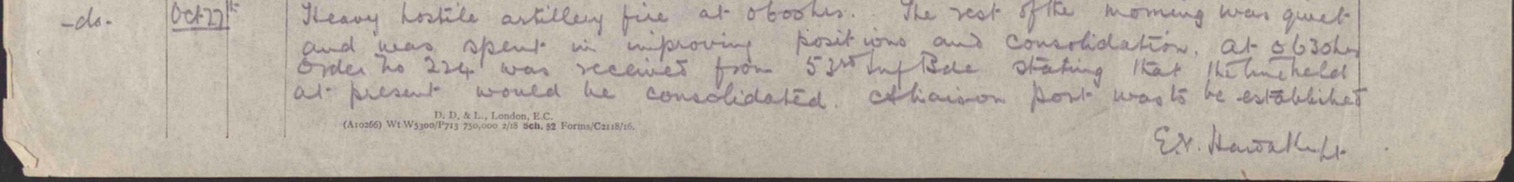 -do- Oct 27th Heavy hostile artillery fire at 0600hrs. The rest of the morning was quiet
and was spent in improving positions and consolidation. At 0630hrs
Order No 224 was received from 53rd Inf Bde stating that the line held
at present would be consolidated. A liaison post was to be established
D. D. & L., London, E.C.
(A10266) Wt W5300/P713 750,000 2/18 Sch. 52 Forms/C2118/16.
E.N. Lt.